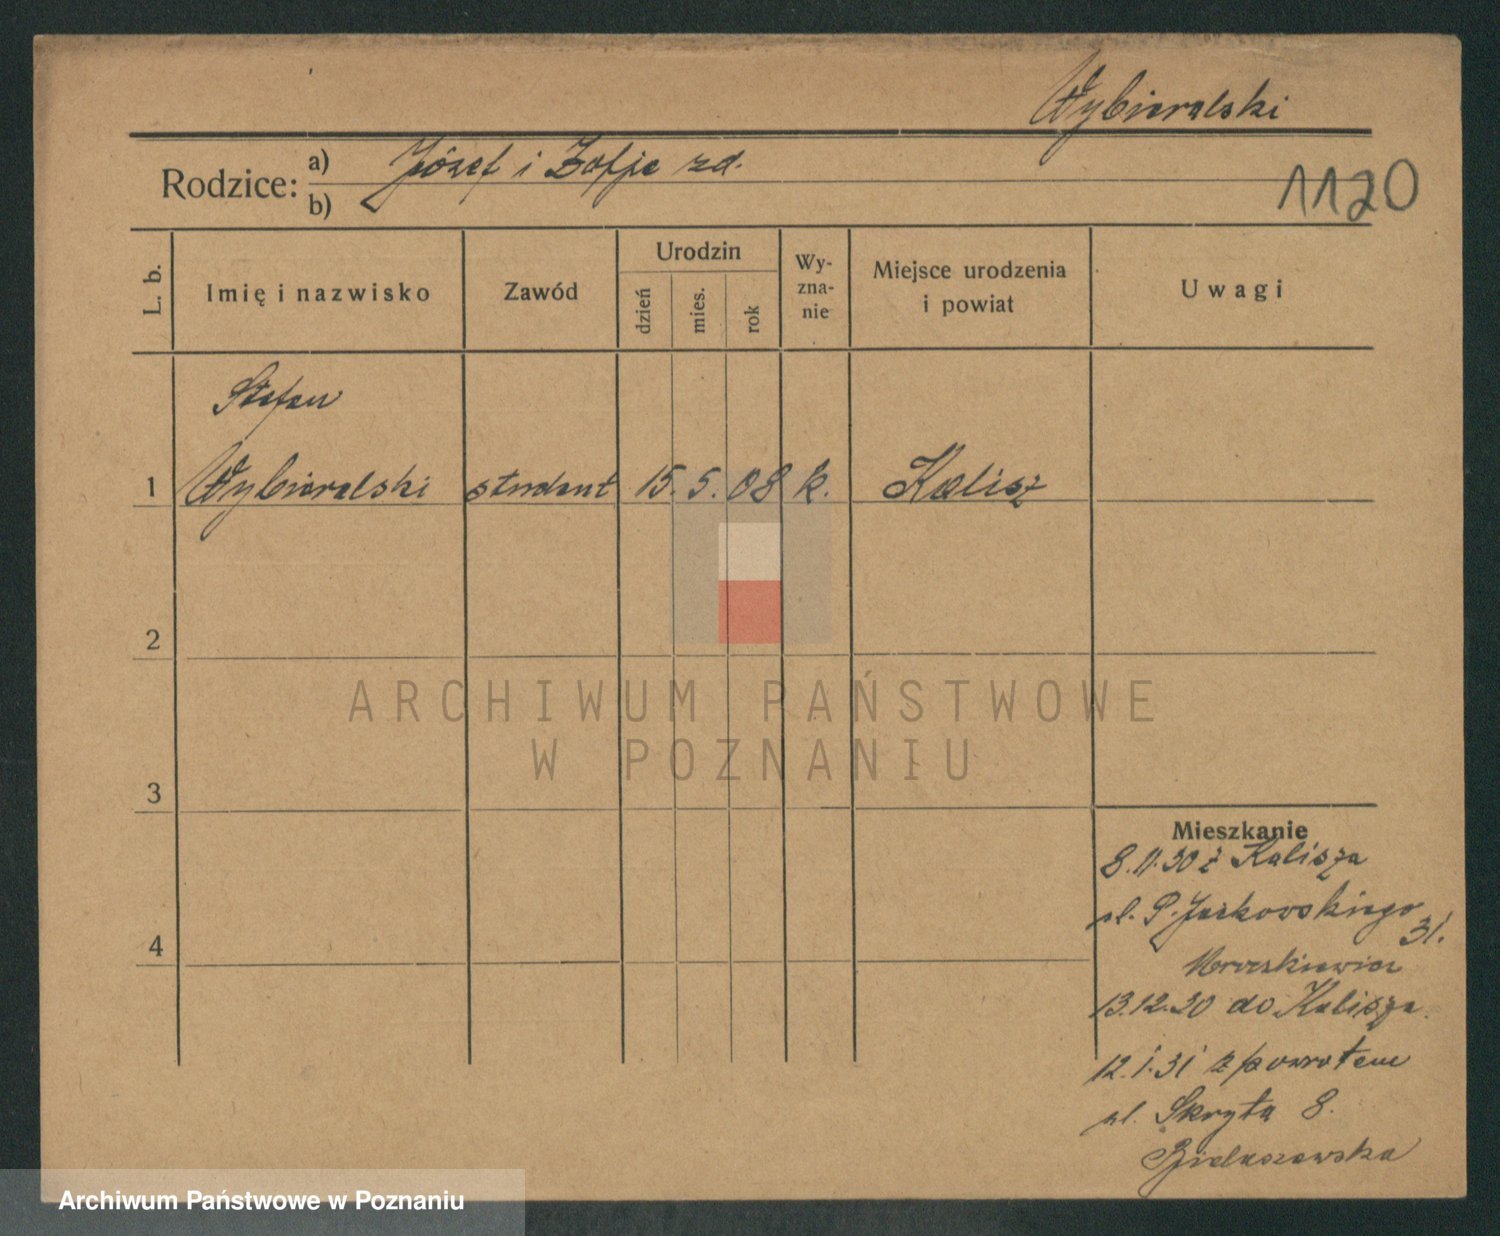 Wybieralski
Rodzice: a) Józef i Zofje zd.
b)
1120
L. b.
Imię i nazwisko
Zawód
Urodzin
dzień
mies.
rok
Wy-
zna-
nie
Miejsce urodzenia
i powiat
Uwagi
Stefan
1 Wybieralski student 15. 5. 08 k. Kalisz
2
ARCHIWUM PAŃSTWOWE
W POZNANIU
3
Mieszkanie
8.11.30 z Kalisza
ul. P. Jackowskiego
31.
4
13.12.30 do Kalisza.
12.1.31 z powrotem
ul. Skryta 8.
Bielaszewska
Archiwum Państwowe w Poznaniu